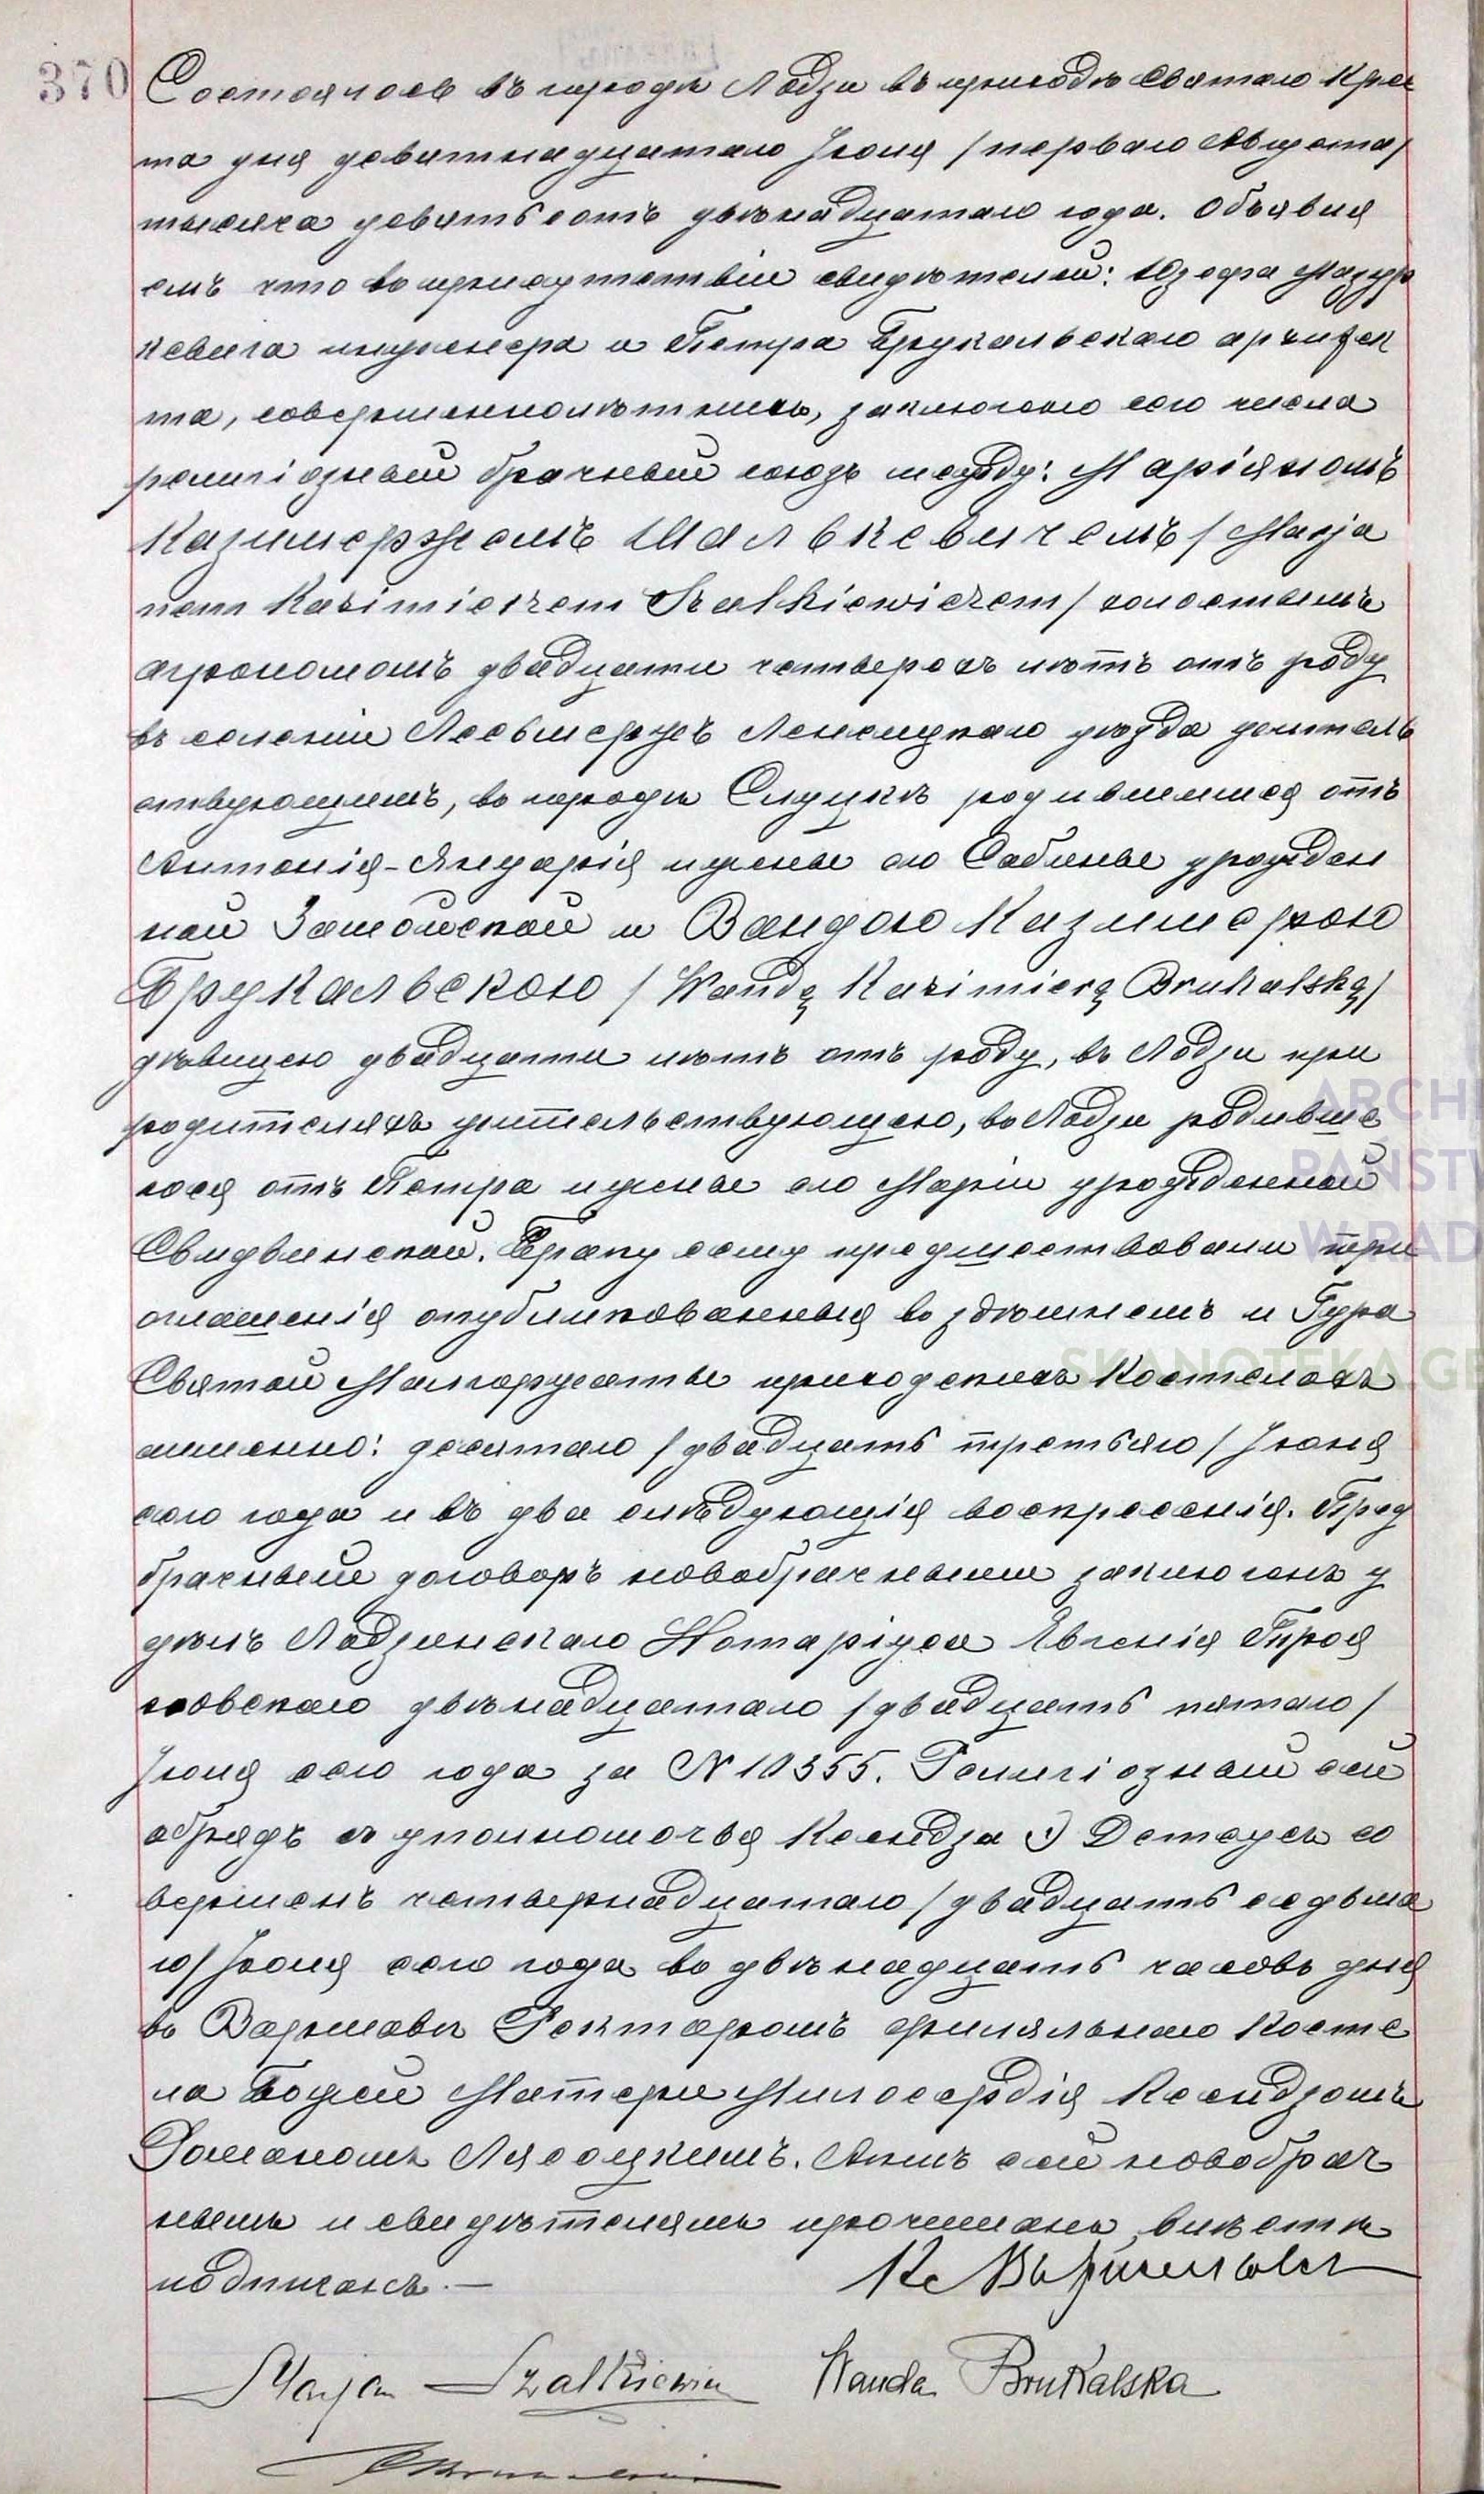 370
Состоялось въ городѣ Лодзи въ приходѣ Святаго Кре
ста дня девятнадцатаго Іюля /перваго Августа/
тысяча девятьсотъ двѣнадцатаго года. Объявля
емъ что въ присутствіи свидѣтелей: Юзефа Мазур
кевича инженера и Петра Брукальскаго архитек
та, совершеннолѣтнихъ, заключено сего числа
религіозный брачный союзъ между: Маріяномъ
Казимержемъ Шалькевичемъ /Marja
nem Kazimierzem Szalkiewiczem/ холостымъ
агрономомъ двадцати четырехъ лѣтъ отъ роду
въ селеніи Лесьмержъ Ленчицкаго уѣзда житель
ствующимъ, въ городѣ Слуцкѣ родившимся отъ
Антонія-Януарія и жены его Сабины урожден
ной Замойской и Вандою Казимерою
Брукальскою /Wandą Kazimierą Brukalską/
дѣвицею двадцати лѣтъ отъ роду, въ Лодзи при
родителяхъ жительствующею, въ Лодзи родивше
юся отъ Петра и жены его Маріи урожденной
Свидвинской. Браку сему предшествовали три
оглашенія опубликованныя въ здѣшнемъ и Гура
Святой Малгоржаты приходскихъ костелахъ
именно: десятаго /двадцать третьяго/ Іюня
сего года и въ два слѣдующія воскресенія. Пред
брачный договоръ новобрачными заключенъ у
дѣлъ Лодзинскаго Нотаріуса Евгенія
двѣнадцатаго /двадцать пятаго/
Іюля сего года за N 10355. Религіозный сей
обрядъ съ уполномочья Ксендза
вершенъ четырнадцатаго /двадцать седьма
го/ Іюля сего года въ двѣнадцать часовъ дня
въ Варшавѣ Ректоромъ филяльнаго Косте
ла Божей Матери Милосердія Ксендзомъ
Романомъ Лясоцкимъ. Актъ сей новобрач
нымъ и свидѣтелямъ прочитанъ, вмѣстѣ
подписанъ.—
Marjan Szalkiewicz Wanda Brukalska
ARCHI
PAŃSTW
W RAD
SKANOTEKA.GE